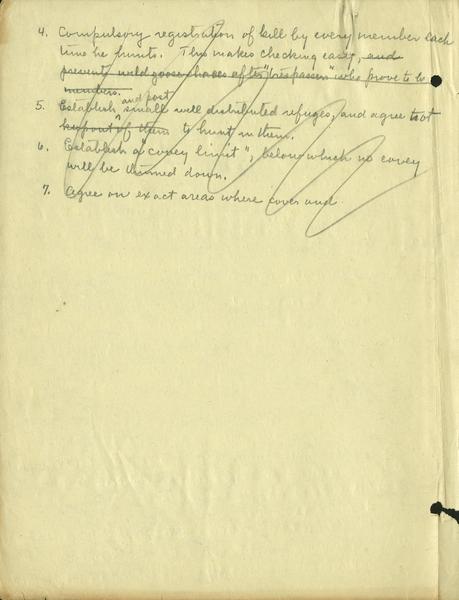 4. Compulsory registration of kill by every member each
time he hunts. This makes checking easy, and
prevents wild goose chases after "trespassers" who prove to be
members.
and post
5. Establish small well distributed refuges, and agree not
keep out of them to hunt in them.
6. Establish a "covey limit", below which no covey
will be thinned down.
7. Agree on exact areas where cover and